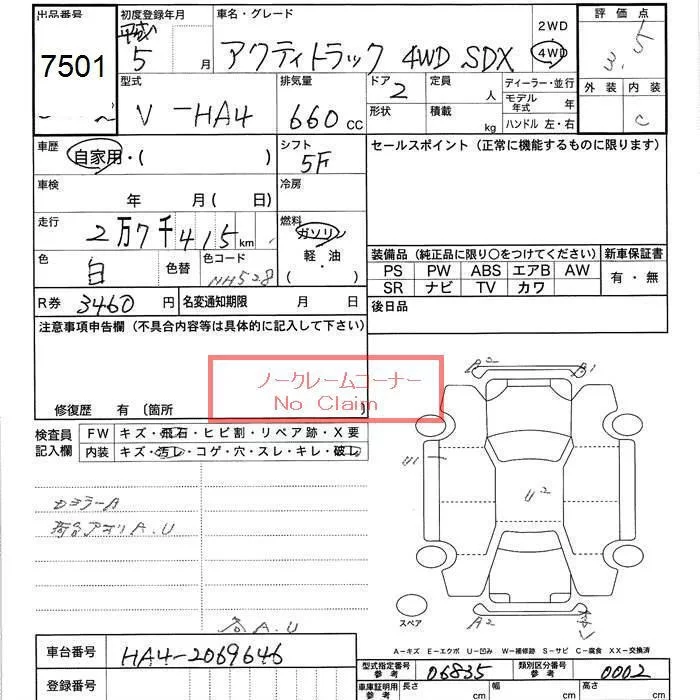 出品番号 初度登録年月 車名・グレード 評価点
7501 平成 5 月 アクティトラック 4WD SDX 2WD 4WD 3.5
型式 排気量 ドア 定員 ディーラー・並行 外装 内装
V-HA4 660 cc 2 人 モデル年式 年 C
形状 積載 kg ハンドル 左・右
車歴 自家用・( ) シフト 5F セールスポイント(正常に機能するものに限ります)
車検 年 月( 日) 冷房
走行 2万7千415km 燃料 ガソリン
軽・油
( )
色 白 色替 色コード NH528
装備品(純正品に限り○をつけてください) 新車保証書
PS PW ABS エアB AW 有・無
SR ナビ TV カワ
R券 3460 円 名変通知期限 月 日 後日品
注意事項申告欄(不具合内容等は具体的に記入して下さい)
ノークレームコーナー
No Claim
修復歴 有〔箇所 〕
検査員 FW キズ・飛石・ヒビ割・リペア跡・X要
記入欄 内装 キズ・汚レ・コゲ・穴・スレ・キレ・破レ
A2 B1
U1
U2
カミラーA
荷台アオリA.U
各A.U
A2
スペア
A-キズ E-エクボ U-凹み W-補修跡 S-サビ C-腐食 XX-交換済
車台番号 HA4-2069646
型式指定番号 参考 06835 類別区分番号 参考 0002
登録番号
車庫証明用 参考 長さ cm 幅 cm 高さ cm